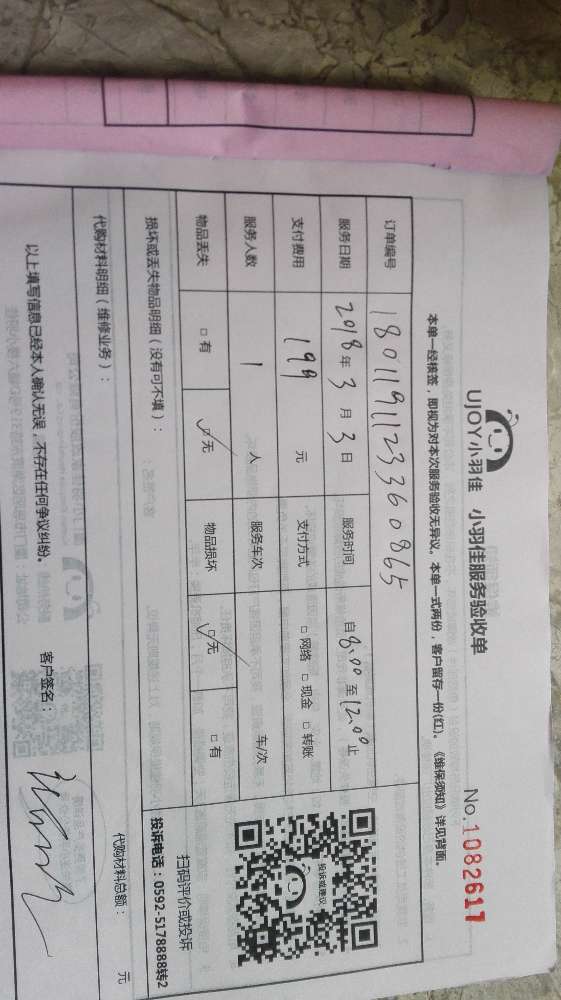 UJOY小羽佳 小羽佳服务验收单 No.1082617
本单一经核签，即视为对本次服务验收无异议。本单一式两份，客户留存一份(红)。《维保须知》详见背面。
订单编号 180119112336 0865
服务日期 2018年3月3日 服务时间 自8:00至12:00止
支付费用 199 元 支付方式 □网络 □现金 □转账
服务人数 1 人 服务车次 车/次
物品丢失 □有 ☑无 物品损坏 ☑无 □有
投诉或建议
扫码评价或投诉
投诉电话：0592-5178888转2
损坏或丢失物品明细（没有可不填）：
代购材料明细（维修业务）： 代购材料总额： 元
以上填写信息已经本人确认无误，不存在任何争议纠纷。 客户签名：